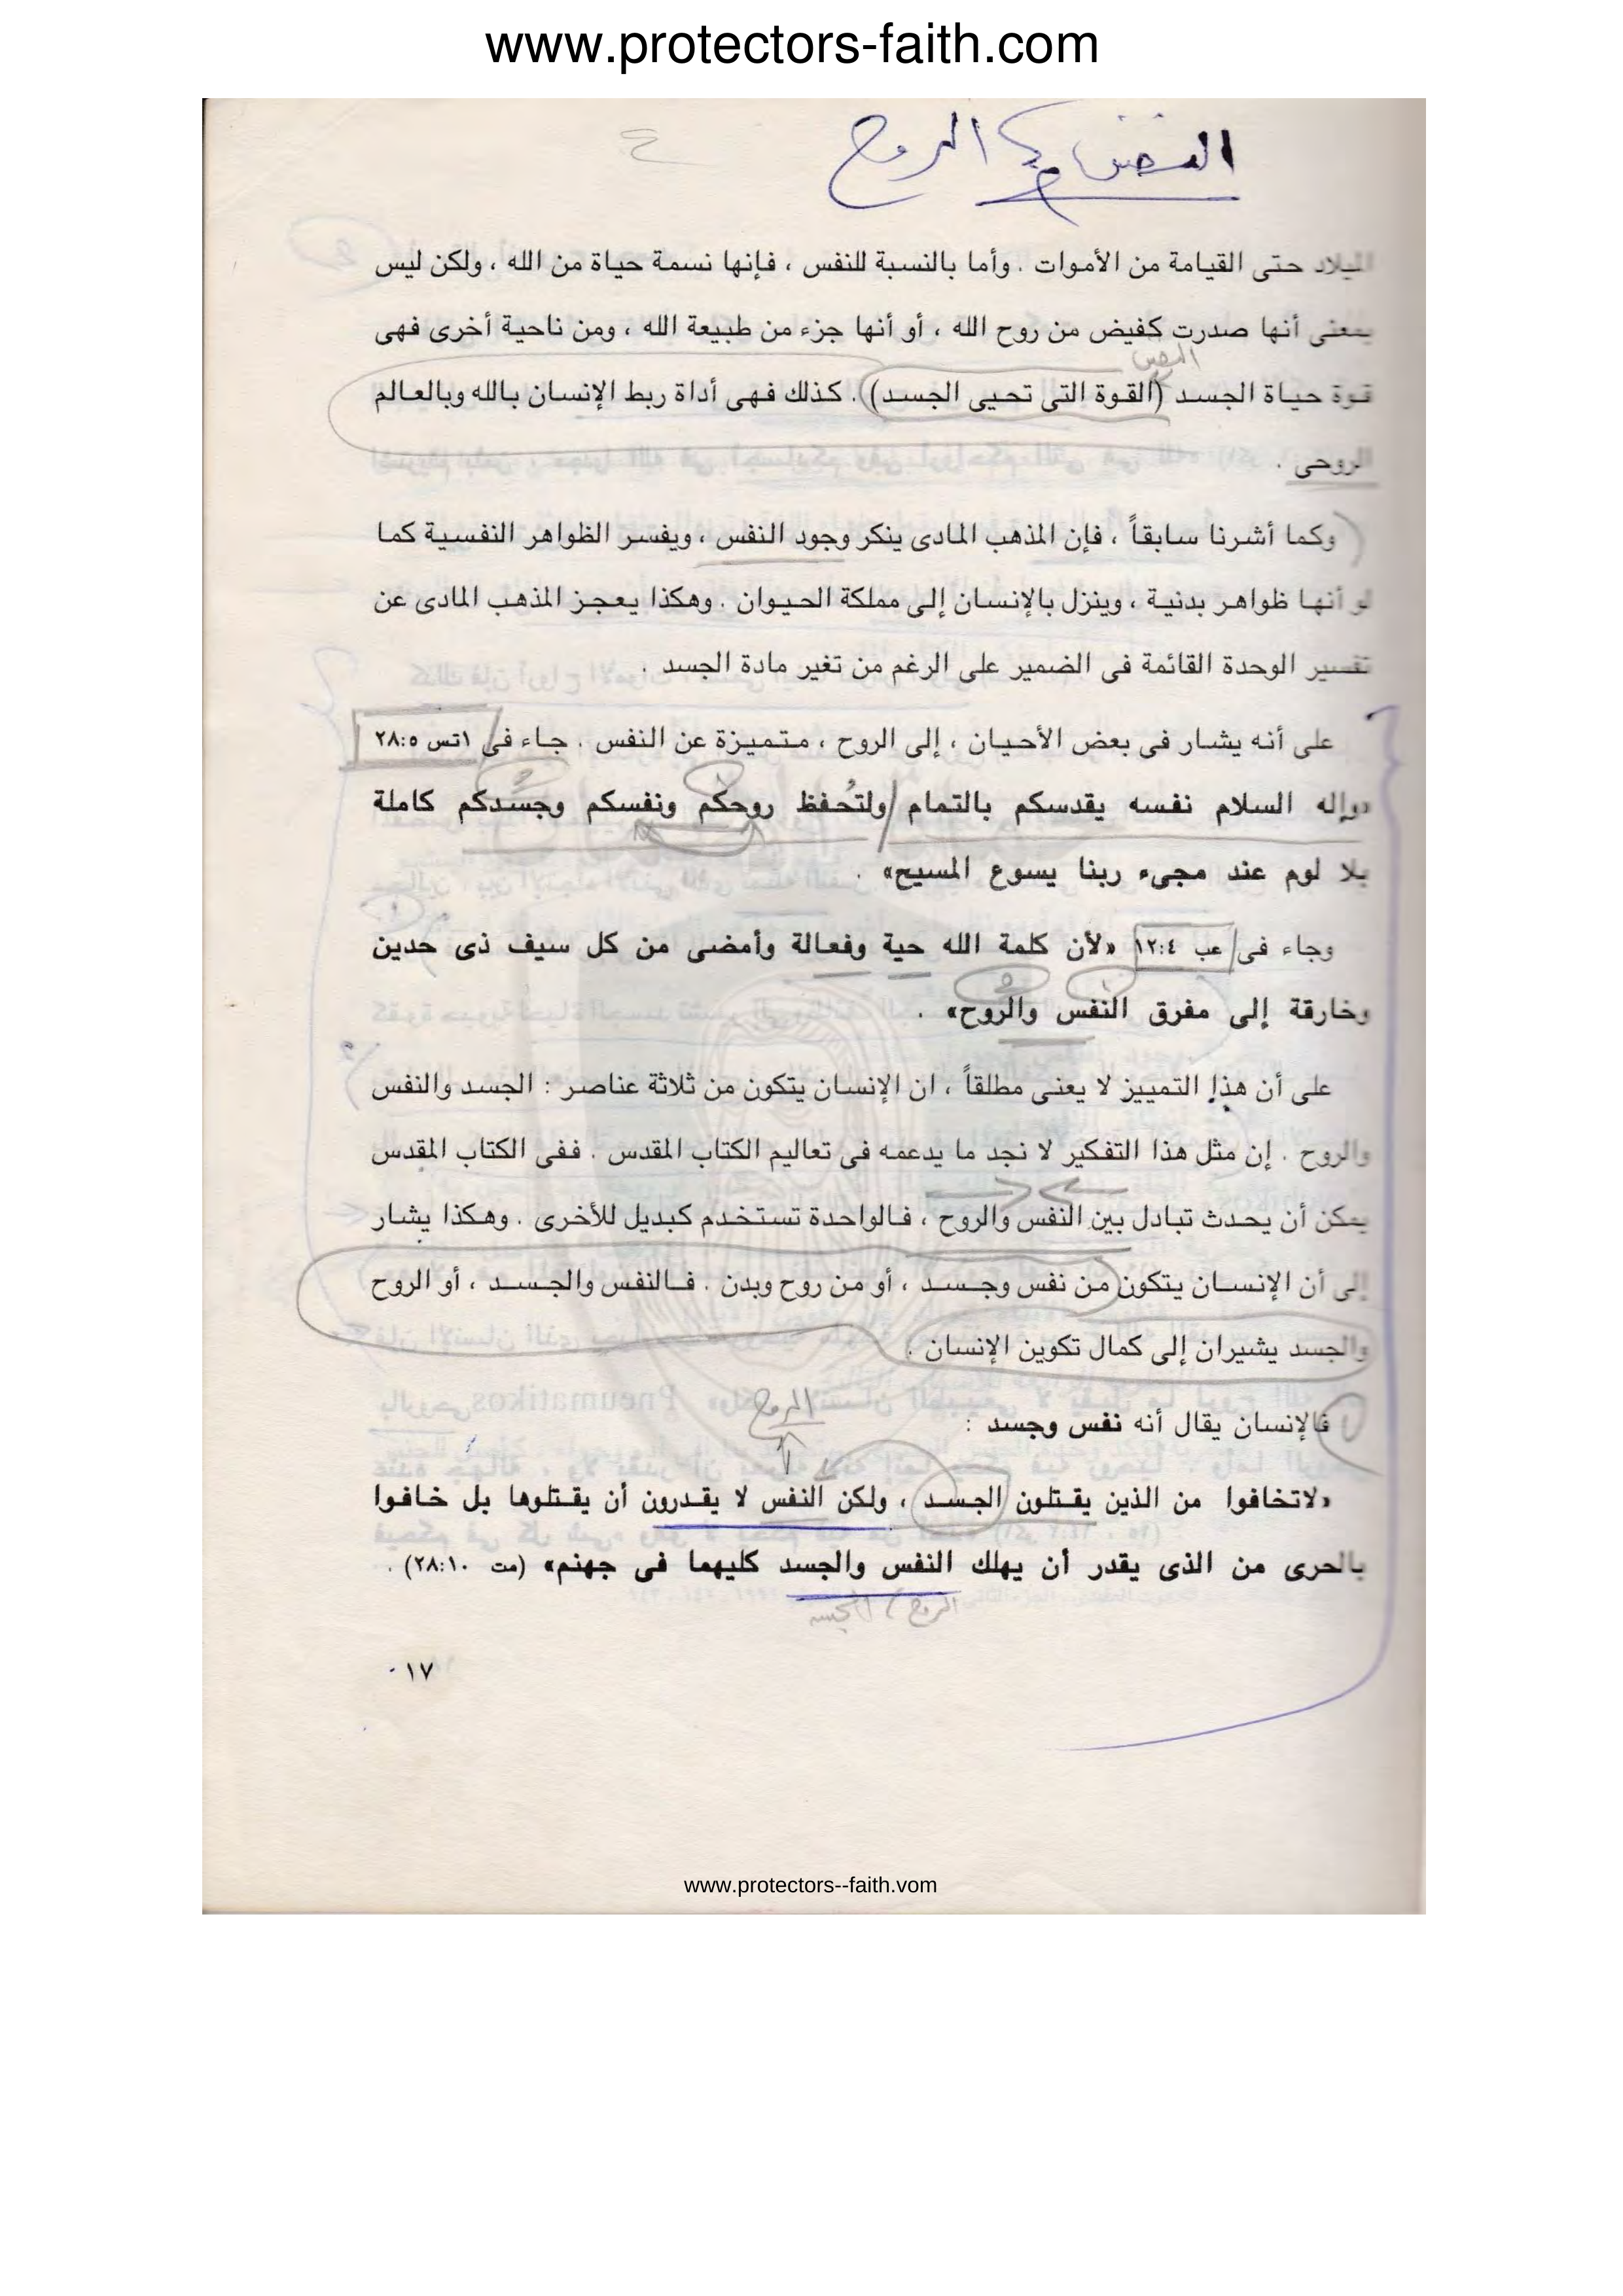 www.protectors-faith.com
النفس و الروح
الميلاد حتى القيامة من الأموات . وأما بالنسبة للنفس ، فإنها نسمة حياة من الله ، ولكن ليس
بمعنى أنها صدرت كفيض من روح الله ، أو أنها جزء من طبيعة الله ، ومن ناحية أخرى فهى
النفس
قوة حياة الجسد (القوة التى تحيى الجسد) . كذلك فهى أداة ربط الإنسان بالله وبالعالم
الروحى .
وكما أشرنا سابقاً ، فإن المذهب المادى ينكر وجود النفس ، ويفسر الظواهر النفسية كما
لو أنها ظواهر بدنية ، وينزل بالإنسان إلى مملكة الحيوان . وهكذا يعجز المذهب المادى عن
تفسير الوحدة القائمة فى الضمير على الرغم من تغير مادة الجسد .
على أنه يشار فى بعض الأحيان ، إلى الروح ، متميزة عن النفس . جاء فى ١تس ٢٨:٥
«وإله السلام نفسه يقدسكم بالتمام ولتُحفظ روحكم ونفسكم وجسدكم كاملة
بلا لوم عند مجىء ربنا يسوع المسيح» .
وجاء فى عب ١٢:٤ «لأن كلمة الله حية وفعالة وأمضى من كل سيف ذى حدين
وخارقة إلى مفرق النفس والروح» .
على أن هذا التمييز لا يعنى مطلقاً ، ان الإنسان يتكون من ثلاثة عناصر : الجسد والنفس
والروح . إن مثل هذا التفكير لا نجد ما يدعمه فى تعاليم الكتاب المقدس . ففى الكتاب المقدس
يمكن أن يحدث تبادل بين النفس والروح ، فالواحدة تستخدم كبديل للأخرى . وهكذا يشار
إلى أن الإنسان يتكون من نفس وجسد ، أو من روح وبدن . فالنفس والجسد ، أو الروح
والجسد يشيران إلى كمال تكوين الإنسان .
الروح
فالإنسان يقال أنه نفس وجسد :
«لاتخافوا من الذين يقتلون الجسد ، ولكن النفس لا يقدرون أن يقتلوها بل خافوا
بالحرى من الذى يقدر أن يهلك النفس والجسد كليهما فى جهنم» (مت ٢٨:١٠) .
الروح / الجسد
١٧
www.protectors--faith.vom